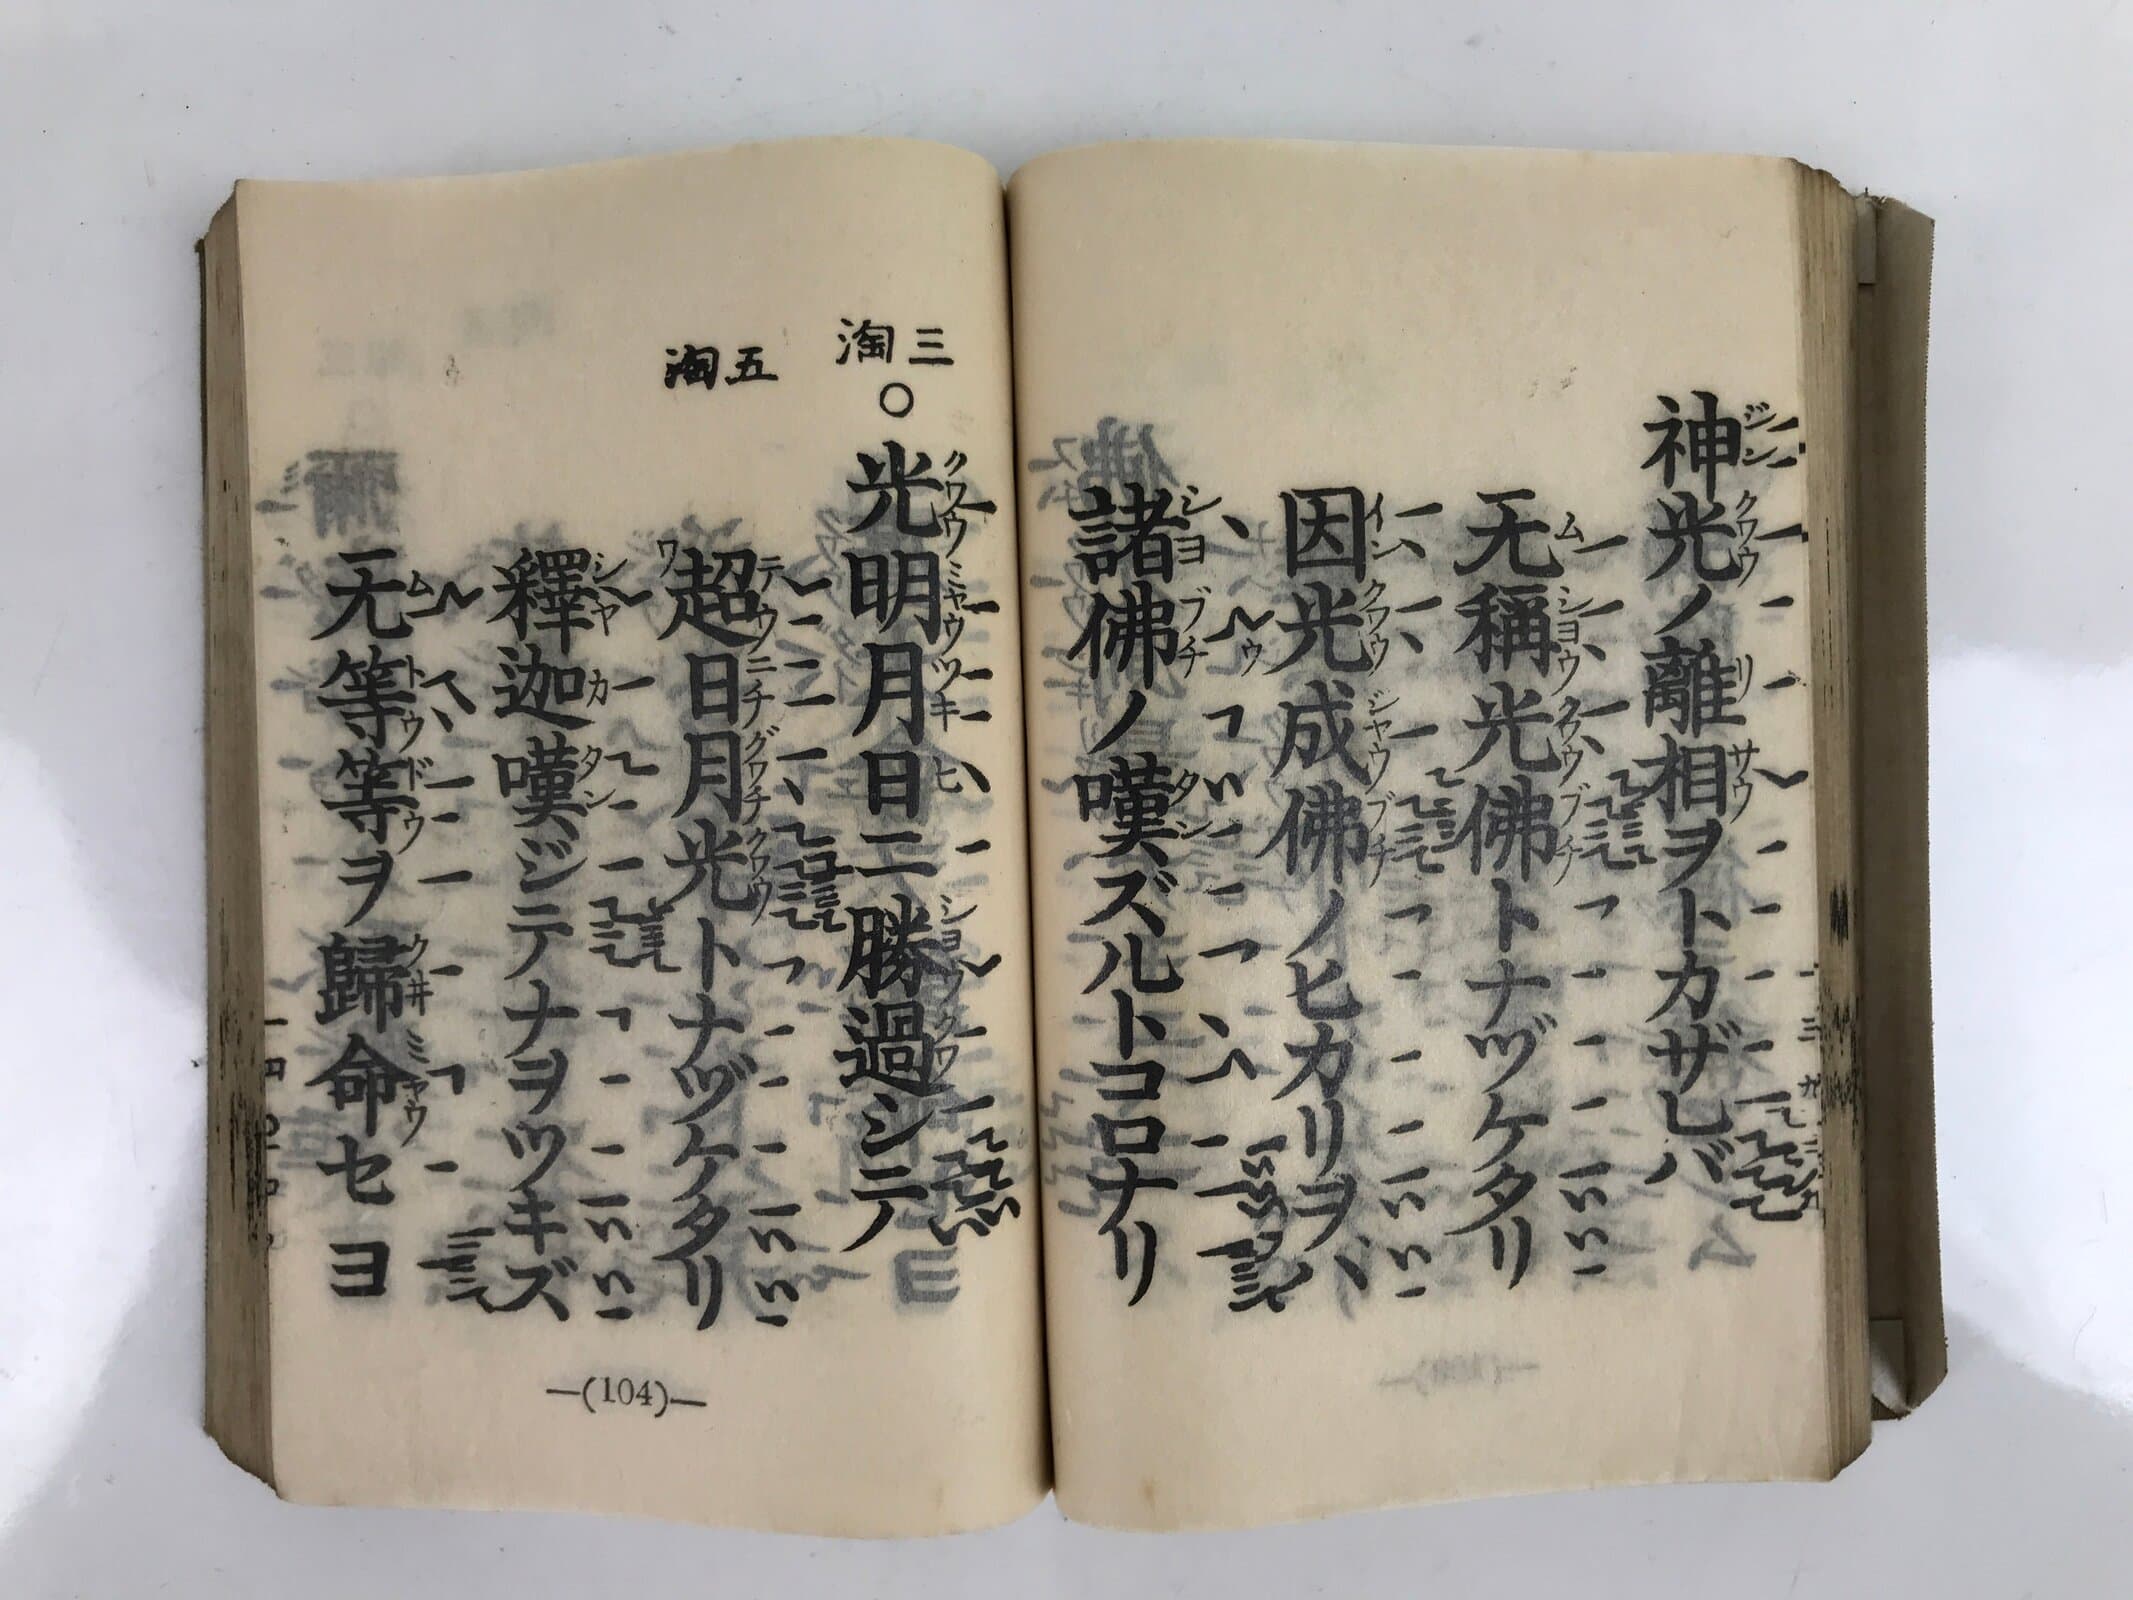 神光ノ離相ヲトカザレバ
无稱光佛トナヅケタリ
因光成佛ノヒカリヲバ
諸佛ノ嘆ズルトコロナリ
淘三
○
光明月日ニ勝過シテ
淘五
超日月光トナヅケタリ
釋迦嘆ジテナヲツキズ
无等等ヲ歸命セヨ
—(104)—